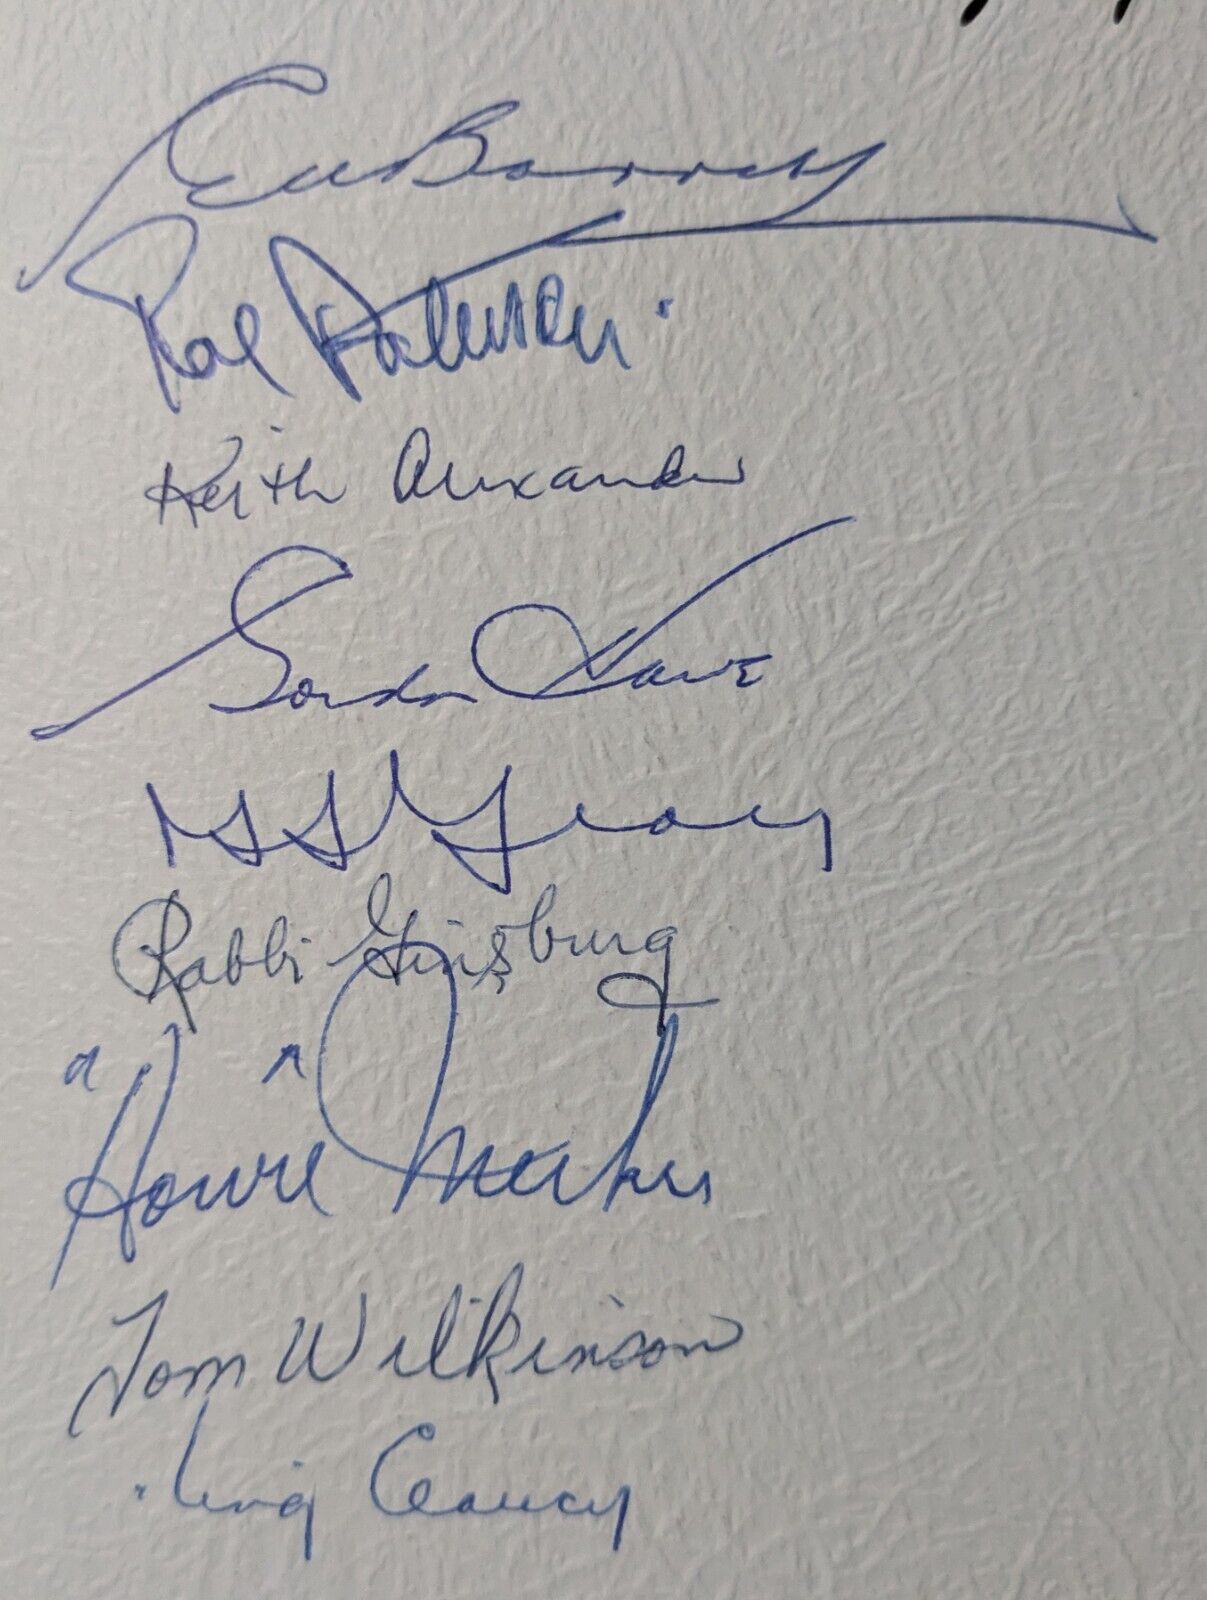 Ed Barry
Rae
Keith Alexander
Gordon Howe
Gray
Rabbi Ginsburg
"Howie" Meeker
Tom Wilkinson
King Clancy